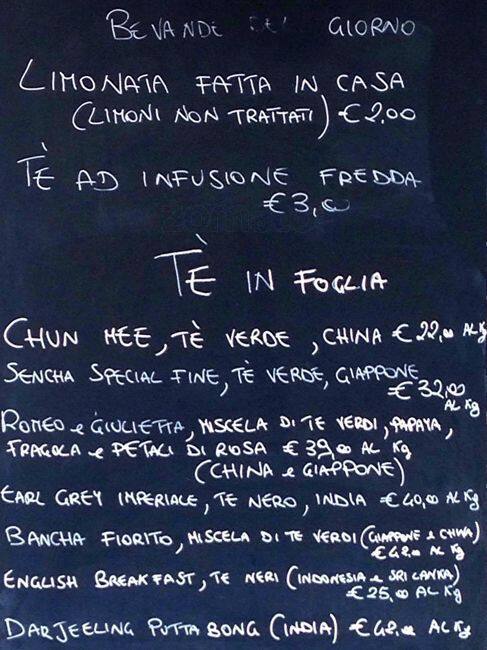 BEVANDE DEL GIORNO
LIMONATA FATTA IN CASA
(LIMONI NON TRATTATI) € 2,00
TÈ AD INFUSIONE FREDDA
€ 3,00
TÈ IN FOGLIA
CHUN MEE, TÈ VERDE, CHINA € 22,00 AL Kg
SENCHA SPECIAL FINE, TÈ VERDE, GIAPPONE
€ 32,00
AL Kg
ROMEO e GIULIETTA, MISCELA DI TE VERDI, PAPAYA,
FRAGOLA e PETALI DI ROSA € 39,00 AL Kg
(CHINA e GIAPPONE)
EARL GREY IMPERIALE, TE NERO, INDIA € 40,00 AL Kg
BANCHA FIORITO, MISCELA DI TE VERDI (GIAPPONE e CHINA)
€ 42,00 AL Kg
ENGLISH BREAKFAST, TE NERI (INDONESIA e SRI LANKA)
€ 25,00 AL Kg
DARJEELING PUTTABONG (INDIA) € 48,00 AL Kg